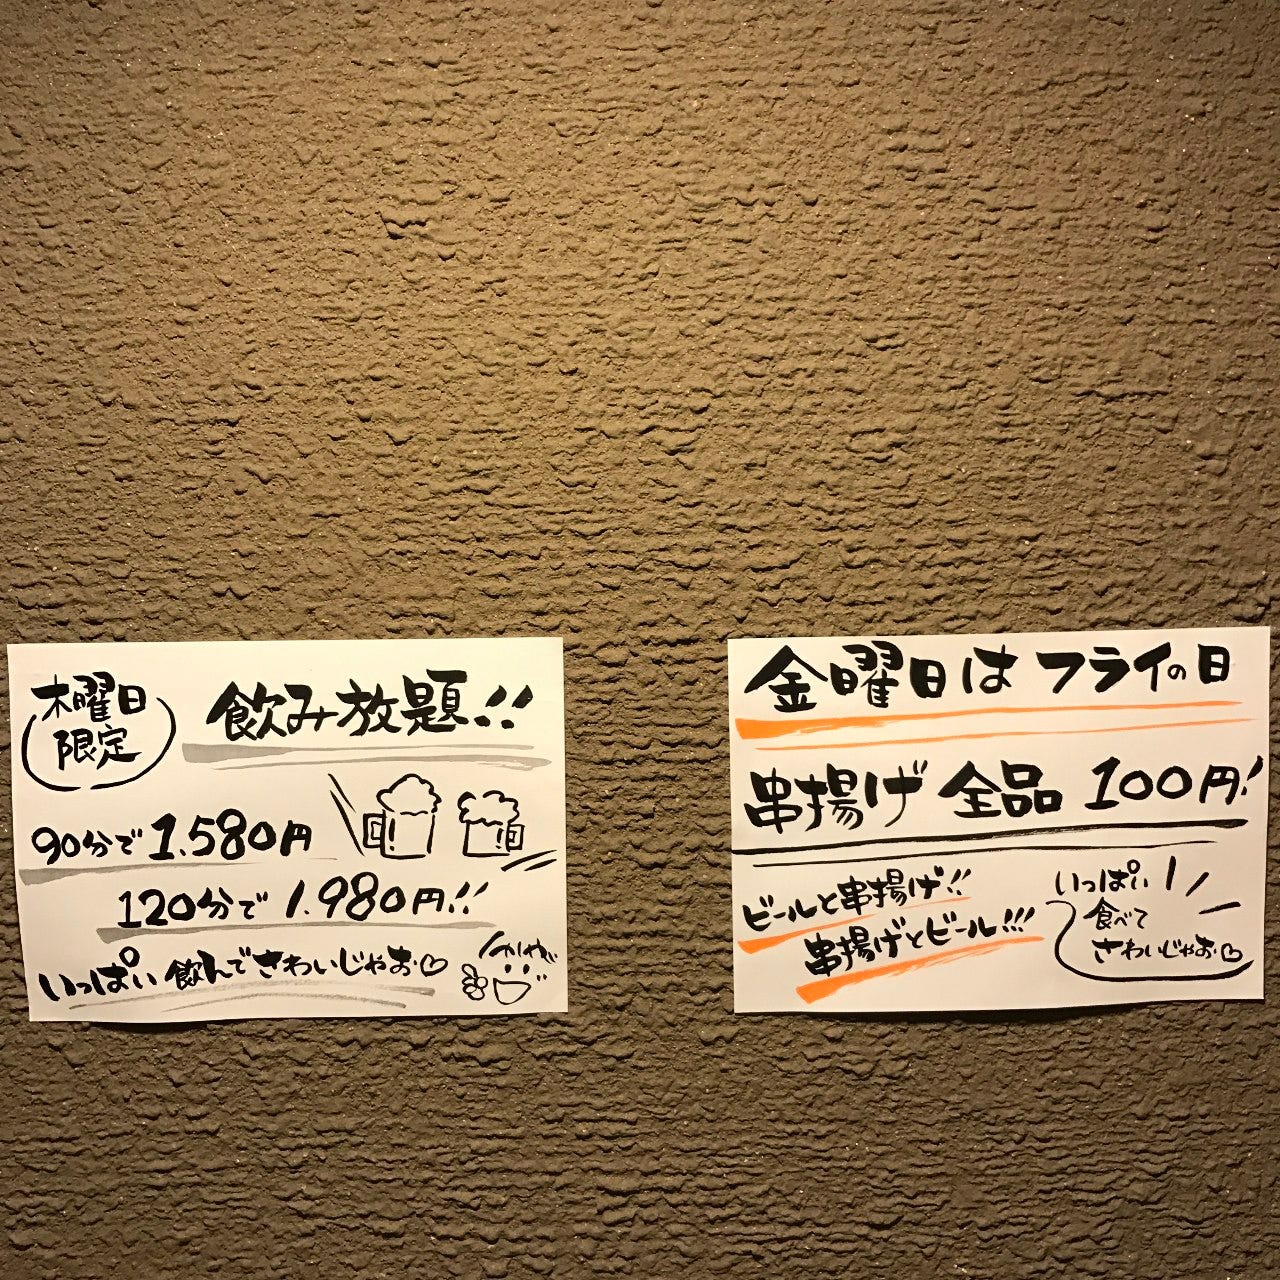 木曜日
限定
飲み放題!!
90分で1.580円
120分で1.980円!!
いっぱい飲んでさわいじゃお♡
金曜日はフライの日
串揚げ 全品 100円!
ビールと串揚げ!!
串揚げとビール!!!
いっぱい
食べて
さわいじゃお♡